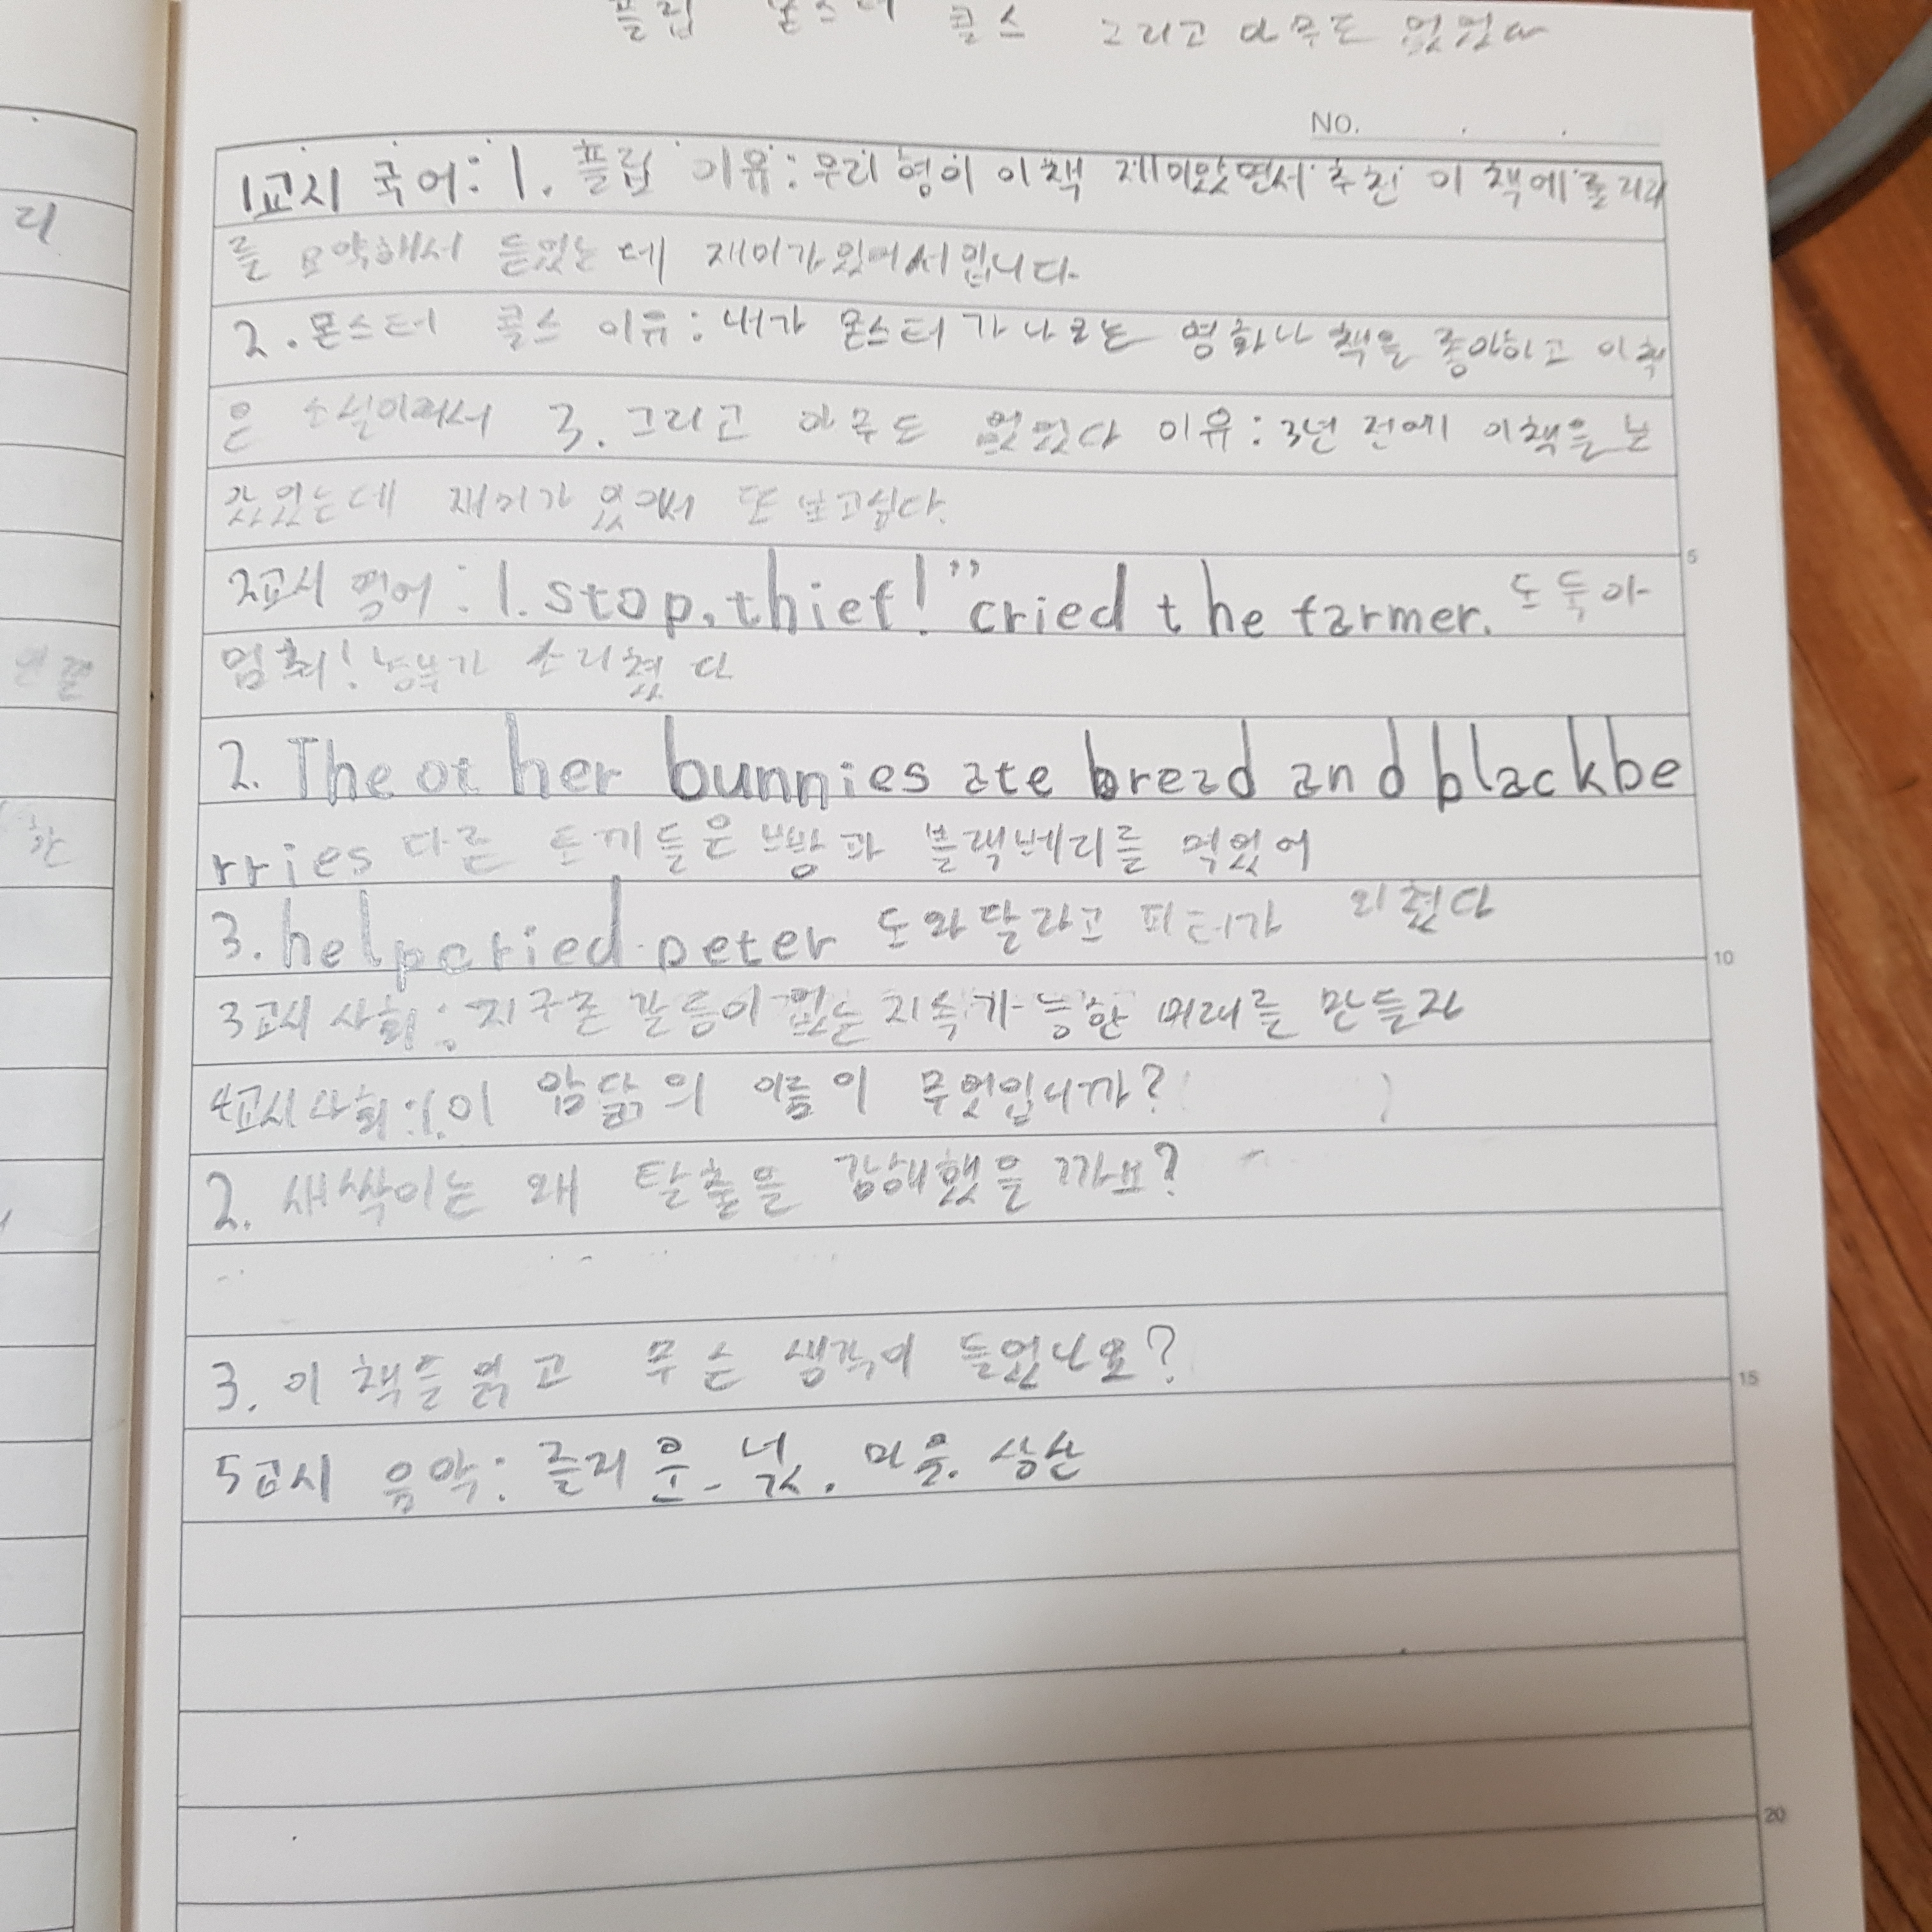 플립 몬스터 콜스 그리고 아무도 없었다
NO.
1교시 국어: 1. 플립 이유: 우리 형이 이책 재미있었면서 추천 이 책에 줄거리
를 요약해서 듣었는데 재미가있어서입니다
2. 몬스터 콜스 이유: 내가 몬스터가 나오는 영화나 책을 좋아하고 이책
은 소설이라서 3. 그리고 아무도 없었다 이유: 3년 전에 이책을 보
았었는데 재미가 있어서 또 보고싶다.
2교시 영어: 1. stop, thief!” cried the farmer. 도둑아
멈춰! 농부가 소리쳤다
2. The other bunnies ate bread and blackbe
rries 다른 토끼들은 빵과 블랙베리를 먹었어
3. help cried peter 도와달라고 피터가 외쳤다
3교시 사회: 지구촌 갈등이 없는 지속가능한 미래를 만들자
4교시 사회: 1. 이 암닭의 이름이 무엇입니까? ( )
2. 새싹이는 왜 탈출을 감행했을 까요?
3. 이 책들읽고 무슨 생각이 들었나요?
5교시 음악: 즐거운 넋. 마을.
5
10
15
20
리